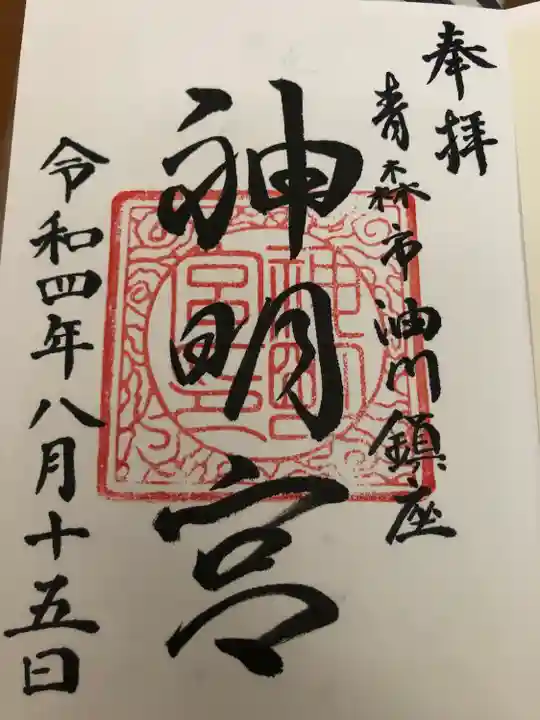 奉拝
青森市油川鎮座
神明宮
令和四年八月十五日